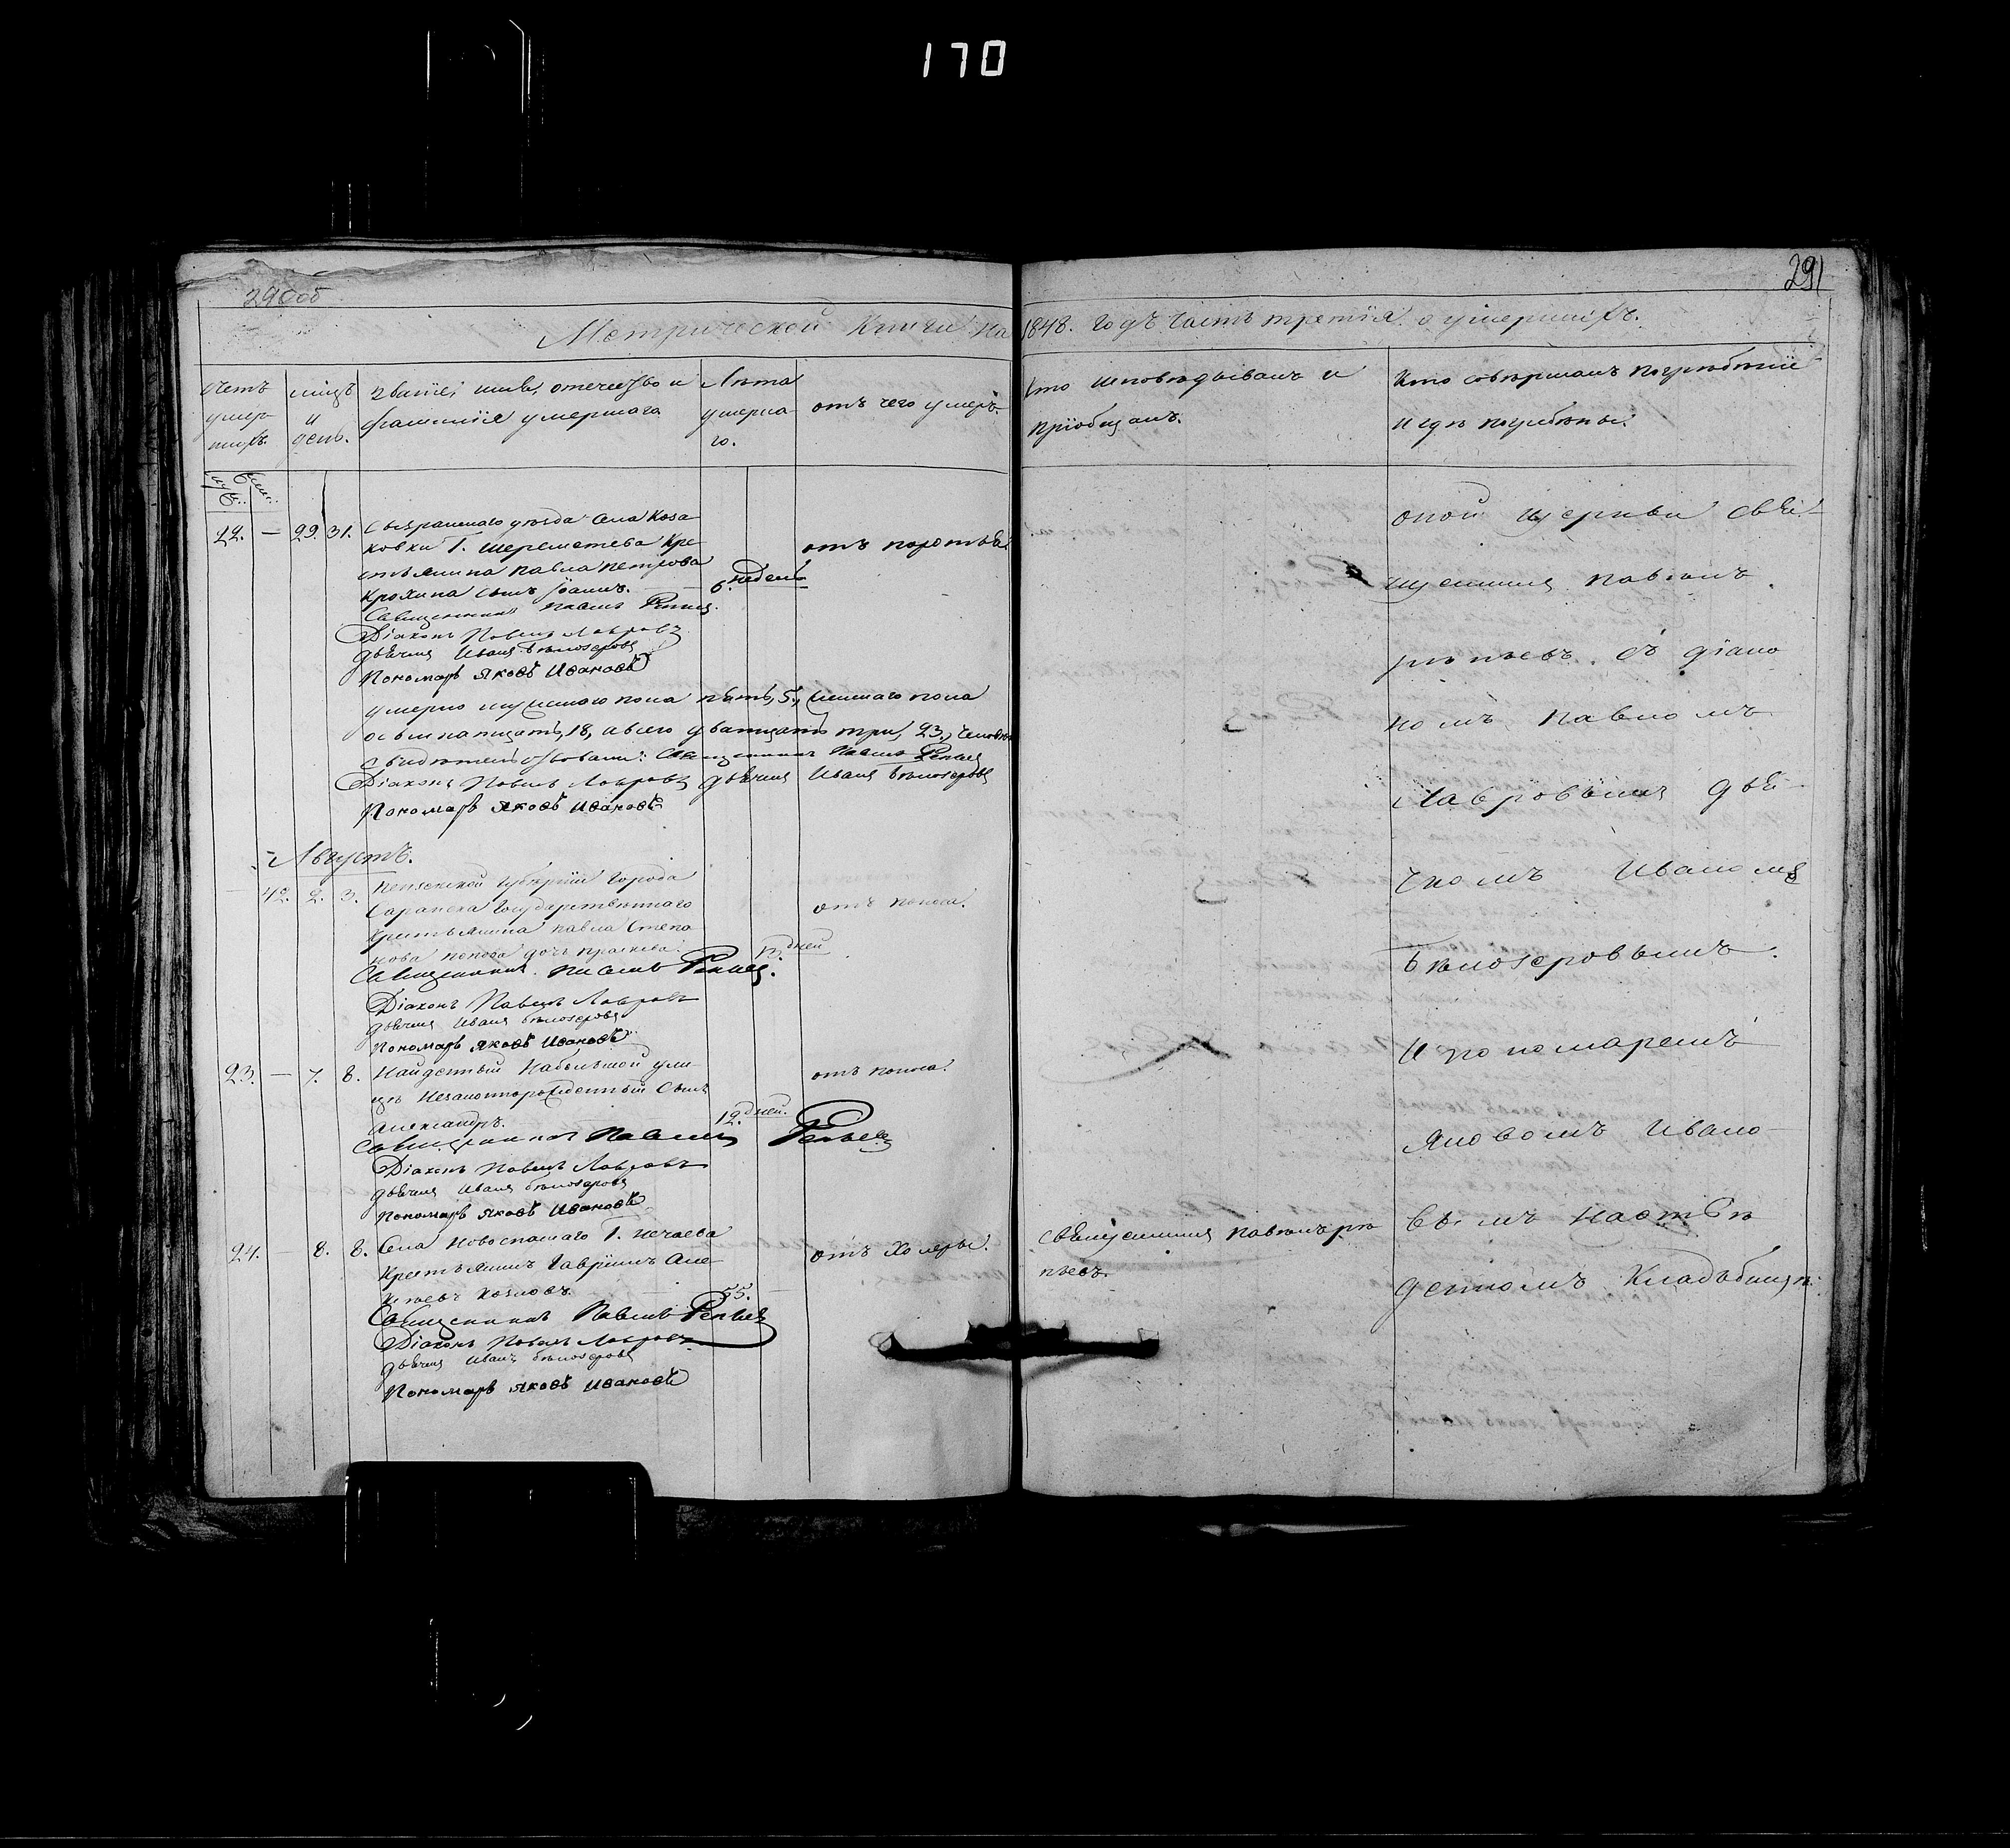 170
290об
291
Метрической книги на 1848. годъ часть третія о умершихъ.
Счетъ умер-
шихъ.
мѣсяцъ
и
день.
Званіе, имя, отечество и
фамилія умершаго
Лѣта
умерша-
го.
отъ чего умеръ.
Кто исповѣдывалъ и
пріобщалъ.
Кто совершалъ погребеніе
и гдѣ погребены.
муж. жен.
22. — 29. 31. Сызранскаго уѣзда села Каза-
ковки Г. Шереметева кре-
стьянина Павла Петрова
Крохина сынъ Іоаннъ. — 6. недель
отъ поротья
Священникъ Павелъ Репьев
Діаконъ Павелъ Лавровъ
дьячекъ Иванъ Бѣлозеровъ
Пономарь Яковъ Ивановъ
умерло мужескаго пола пять, 5, женскаго пола
осьмнатцать, 18, а всего дватцать три, 23, человѣк
свидѣтельствовали: Священникъ Павелъ Репьев
Діаконъ Павелъ Лавровъ дьячекъ Иванъ Бѣлозеровъ
Пономарь Яковъ Ивановъ
Августъ.
— 42. 2. 3. Пензенской губерніи города
Саранска государственнаго
крестьянина Павла Степа
нова Попова дочь
дней
отъ поноса.
Священникъ Павелъ Репьев.
Діаконъ Павелъ Лавровъ
дьячекъ Иванъ Бѣлозеровъ
Пономарь Яковъ Ивановъ
23. — 7. 8. Найденный на большой ули-
цѣ незаконнорожденный сынъ
Александръ. 12. дней.
отъ поноса.
Священникъ Павелъ Репьев
Діаконъ Павелъ Лавровъ
дьячекъ Иванъ Бѣлозеровъ
Пономарь Яковъ Ивановъ
24. 8. 8. Села Новоспаскаго Г. Нечаева
крестьянинъ Гавріилъ Але-
ксѣевъ Козловъ. 55. —
отъ холеры.
Священникъ Павелъ Репьев
Діаконъ Павелъ Лавровъ
дьячекъ Иванъ Бѣлозеровъ
Пономарь Яковъ Ивановъ
Священникъ Павелъ Рѣ
пьевъ.
оной церкви свя-
щенникъ Павелъ
рѣпьевъ съ діако
номъ Павломъ
Лавровымъ дья-
чкомъ Иваномъ
Бѣлозеровымъ.
и пономаремъ
Яковомъ Ивано-
вымъ на отвѣ
денномъ кладбищѣ.